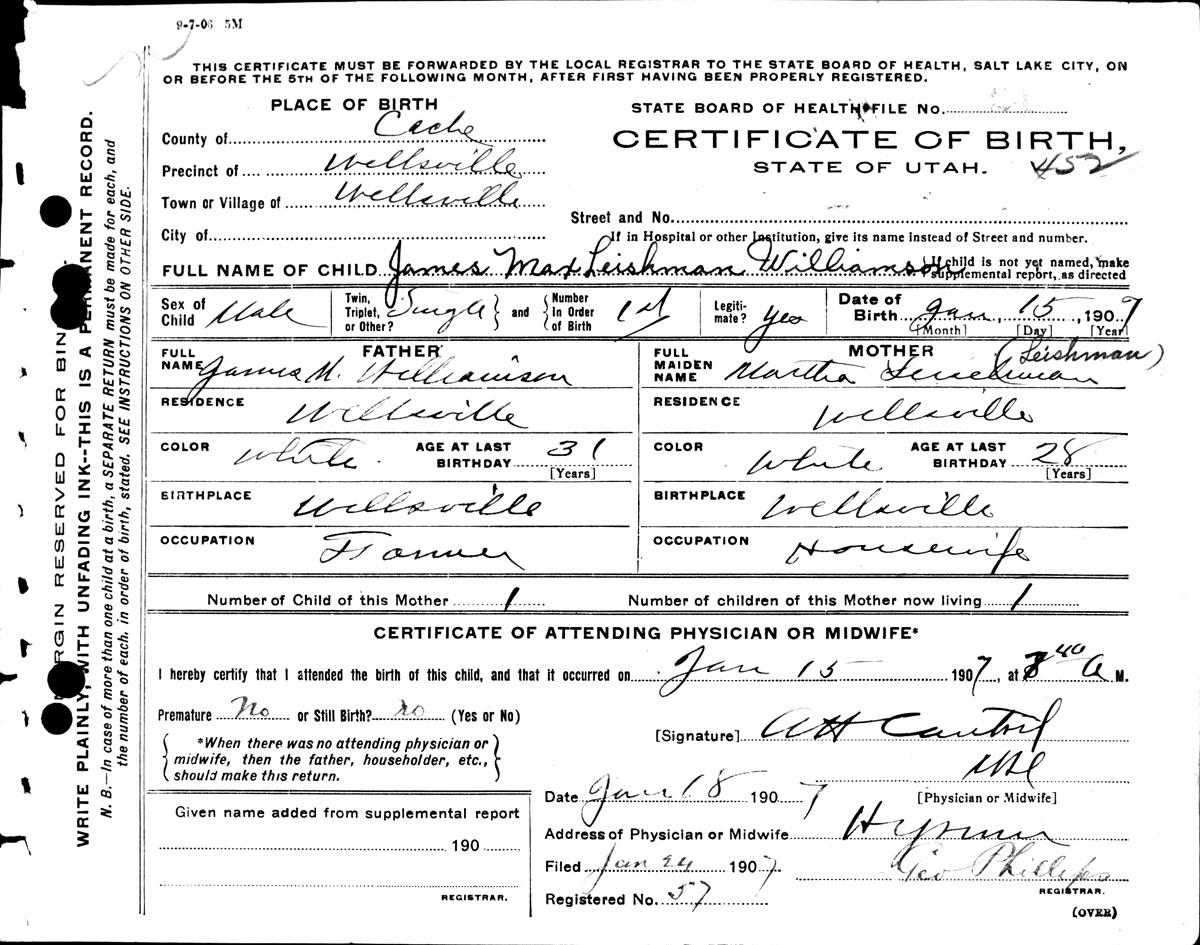 9-7-06 5M
THIS CERTIFICATE MUST BE FORWARDED BY THE LOCAL REGISTRAR TO THE STATE BOARD OF HEALTH, SALT LAKE CITY, ON
OR BEFORE THE 5TH OF THE FOLLOWING MONTH, AFTER FIRST HAVING BEEN PROPERLY REGISTERED.
PLACE OF BIRTH
County of Cache
Precinct of Wellsville
Town or Village of Wellsville
City of
STATE BOARD OF HEALTH FILE No.
CERTIFICATE OF BIRTH,
STATE OF UTAH. 452
Street and No.
If in Hospital or other Institution, give its name instead of Street and number.
FULL NAME OF CHILD James Max Leishman Williamson
If child is not yet named, make
supplemental report, as directed
Sex of Child Male
Twin, Triplet, or Other? Single and Number In Order of Birth 1st
Legiti-mate? Yes
Date of Birth Jan. 15, 1907
[Month] [Day] [Year]
FATHER
FULL NAME James M. Williamson
RESIDENCE Wellsville
COLOR White AGE AT LAST BIRTHDAY 31
[Years]
BIRTHPLACE Wellsville
OCCUPATION Farmer
MOTHER (Leishman)
FULL MAIDEN NAME Martha
RESIDENCE Wellsville
COLOR White AGE AT LAST BIRTHDAY 28
[Years]
BIRTHPLACE Wellsville
OCCUPATION Housewife
Number of Child of this Mother 1 Number of children of this Mother now living 1
CERTIFICATE OF ATTENDING PHYSICIAN OR MIDWIFE*
I hereby certify that I attended the birth of this child, and that it occurred on Jan 15 1907, at 40 A M.
Premature No or Still Birth? no (Yes or No)
*When there was no attending physician or
midwife, then the father, householder, etc.,
should make this return.
[Signature]
[Physician or Midwife]
Date Jan 18 1907
Address of Physician or Midwife Hyrum
Filed Jan 24 1907 Geo Phillips
REGISTRAR.
Registered No. 57
(OVER)
Given name added from supplemental report
190
REGISTRAR.
MARGIN RESERVED FOR
WRITE PLAINLY, WITH UNFADING INK--THIS IS A PERMANENT RECORD.
N. B.—In case of more than one child at a birth, a SEPARATE RETURN must be made for each, and
the number of each, in order of birth, stated. SEE INSTRUCTIONS ON OTHER SIDE.